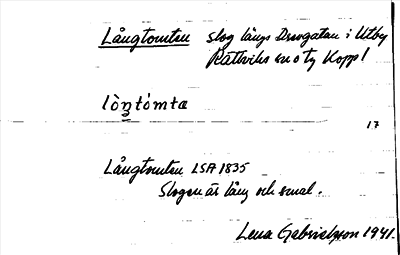 Långtomten skog längs Dravgatan i Utby
Rättviks sn o tg Kopp l
lòŋtómta
17
Långtomten LSA 1835
Skogen är lång och smal.
Lena Gabrielsson 1941.